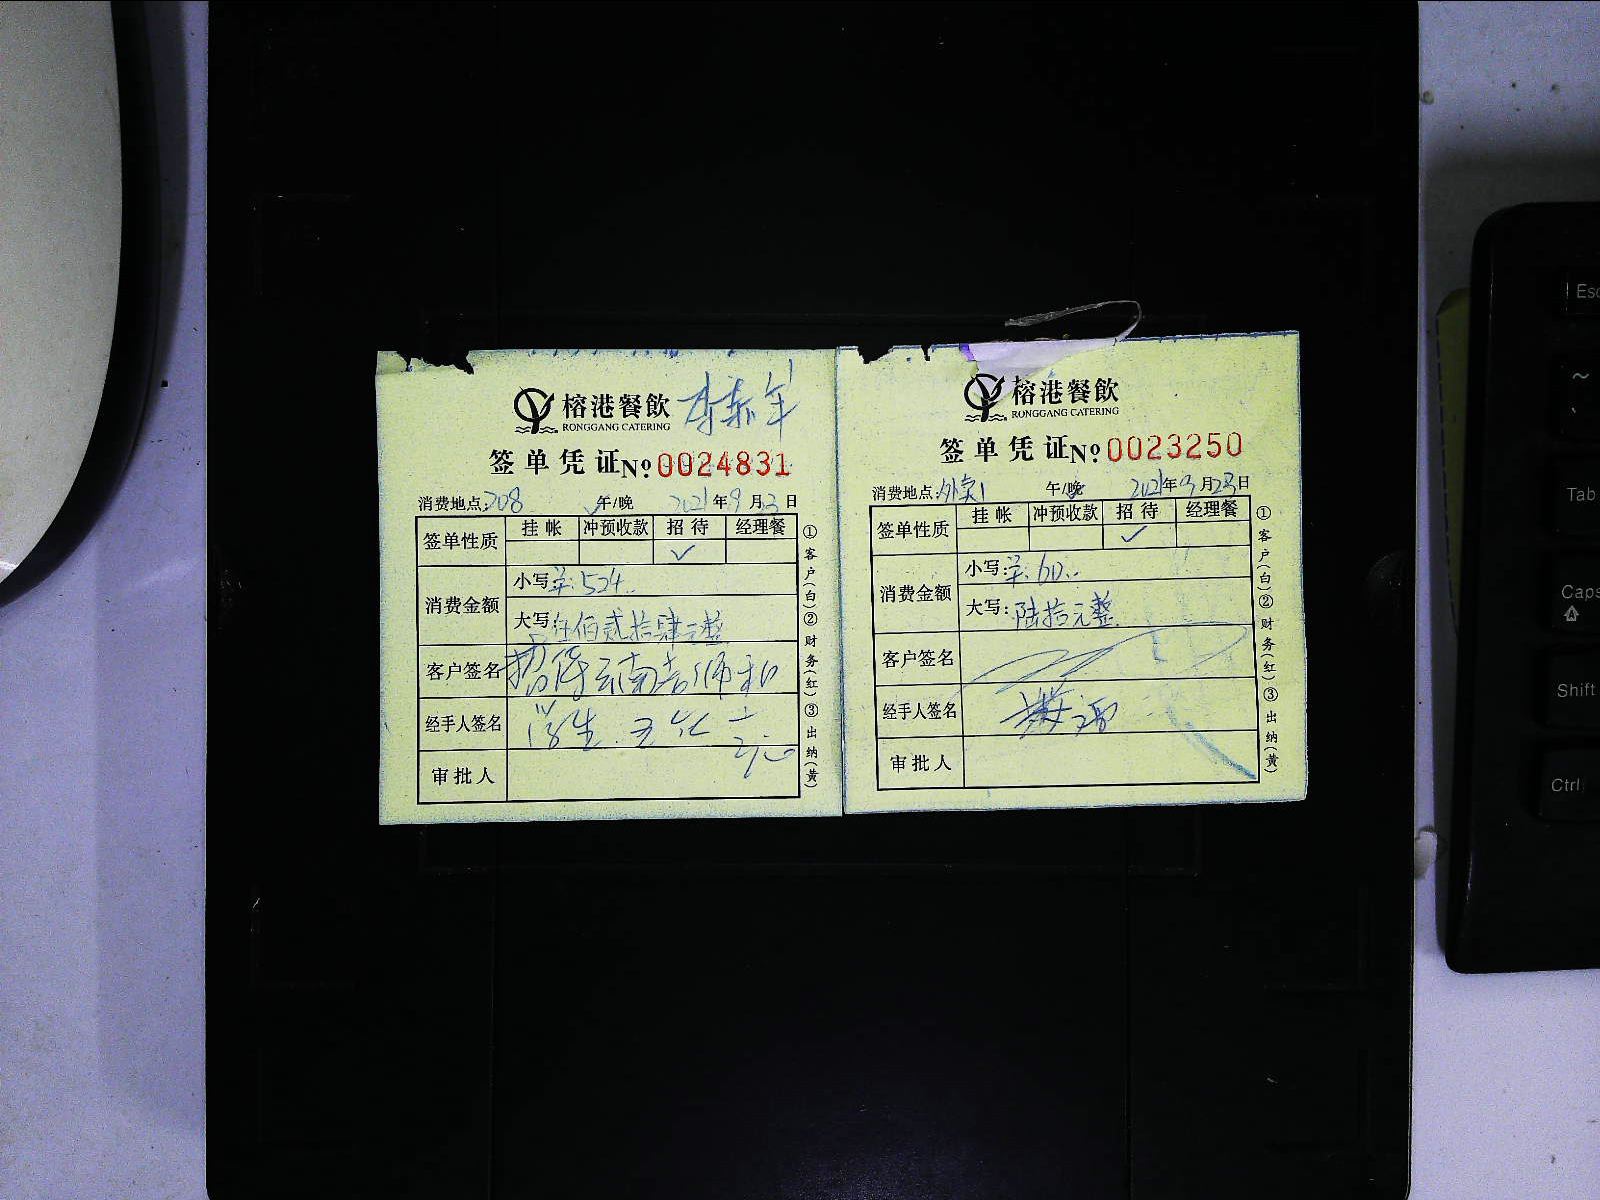 榕港餐飲
RONGGANG CATERING
签单凭证 No 0024831
消费地点:208 午/晚 2021年9月23日
签单性质 挂帐 冲预收款 招待 经理餐
✓
消费金额 小写:羊:524..
大写:伍佰贰拾肆元整
客户签名 招待云南老师和
经手人签名 学生
审批人
①客户(白)②财务(红)③出纳(黄)
榕港餐飲
RONGGANG CATERING
签单凭证 No 0023250
消费地点:外卖1 午/晚 2021年9月23日
签单性质 挂帐 冲预收款 招待 经理餐
✓
消费金额 小写:羊:60..
大写:陆拾元整
客户签名
经手人签名
审批人
①客户(白)②财务(红)③出纳(黄)
Esc
~
Tab
Caps
Shift
Ctrl